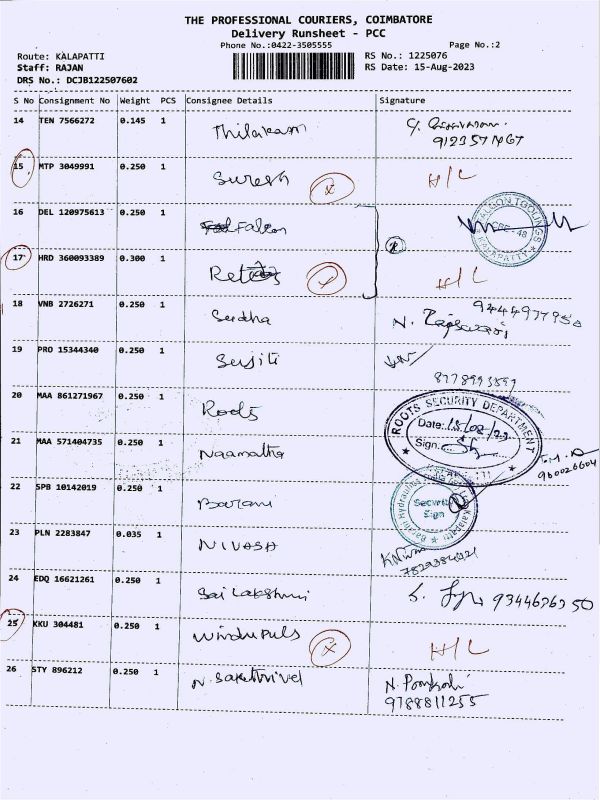 THE PROFESSIONAL COURIERS, COIMBATORE
Delivery Runsheet - PCC
Phone No.:0422-3505555
Page No.:2
Route: KALAPATTI
RS No.: 1225076
Staff: RAJAN
RS Date: 15-Aug-2023
DRS No.: DCJB122507602
S No Consignment No Weight PCS Consignee Details Signature
14 TEN 7566272 0.145 1 Thilakam
15 MTP 3049991 0.250 1 Suresh H/L
16 DEL 120975613 0.250 1 Falcon
FALCON TOOLINGS
KALAPATTY
17 HRD 360093389 0.300 1 H/L
18 VNB 2726271 0.250 1 Sudha
19 PRO 15344340 0.250 1
20 MAA 861271967 0.250 1 Roots
ROOTS SECURITY DEPARTMENT
Date: 15/08/23
Sign.
21 MAA 571404735 0.250 1 Naamatha
22 SPB 10142019 0.250 1 Barani
Security
Sign
23 PLN 2283847 0.035 1 NIVASH
24 EDQ 16621261 0.250 1 Sai Lakshmi
25 KKU 304481 0.250 1 H/L
26 STY 896212 0.250 1 N. Sakthivel
9788811255